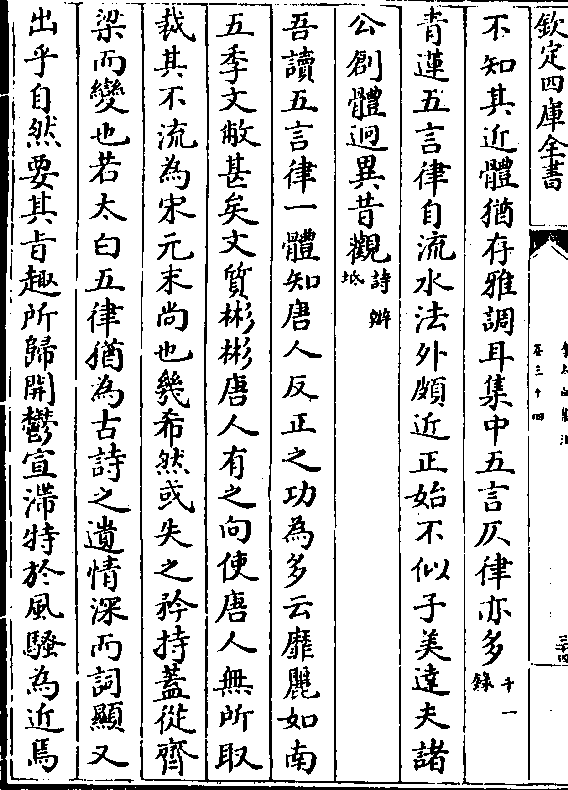 欽定四庫全書
卷三十四
不知其近體猶存雅調耳集中五言仄律亦多
十一錄
青蓮五言律自流水法外頗近正始不似子美達夫諸
公創體迥異昔觀
詩辯坻
吾讀五言律一體知唐人反正之功為多云靡麗如南
五季文敝甚矣文質彬彬唐人有之向使唐人無所取
裁其不流為宋元末尚也幾希然或失之矜持蓋從齊
梁而變也若太白五律猶為古詩之遺情深而詞顯又
出乎自然要其旨趣所歸開鬱宣滯特於風騷為近焉